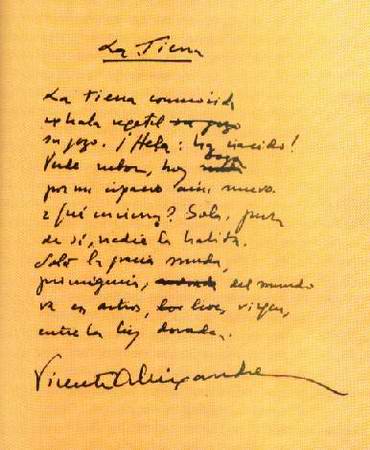 La Tierra
La tierra conmovida
exhala vegetal su gozo
su gozo. ¡Hela: ha nacido!
Verde rubor, hoy boga
por un espacio aún nuevo.
¿Qué encierra? Sola, pura
de sí, nadie la habita.
Sólo la gracia muda,
primigenia, del mundo
va en astros, leve, virgen,
entre la luz dorada.
Vicente Aleixandre